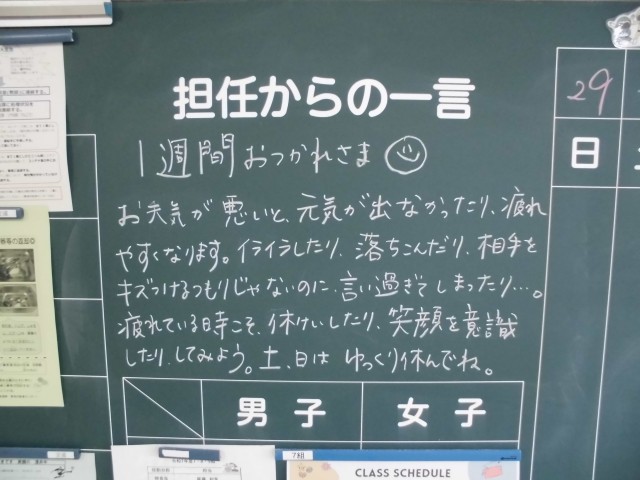 担任からの一言
1週間おつかれさま
お天気が悪いと、元気が出なかったり、疲れ
やすくなります。イライラしたり、落ちこんだり、相手を
キズつけるつもりじゃないのに、言い過ぎてしまったり…。
疲れている時こそ、休けいしたり、笑顔を意識
したり、してみよう。土、日は ゆっくり休んでね。
29
日
男子
女子
7組
CLASS SCHEDULE